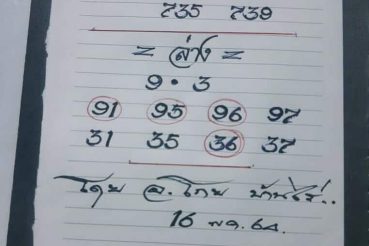 735 739
= ล่าง =
9 • 3
91 95 96 97
31 35 36 37
โดย อ. โกย บ้านไร่..
16 พ.ย. 64.